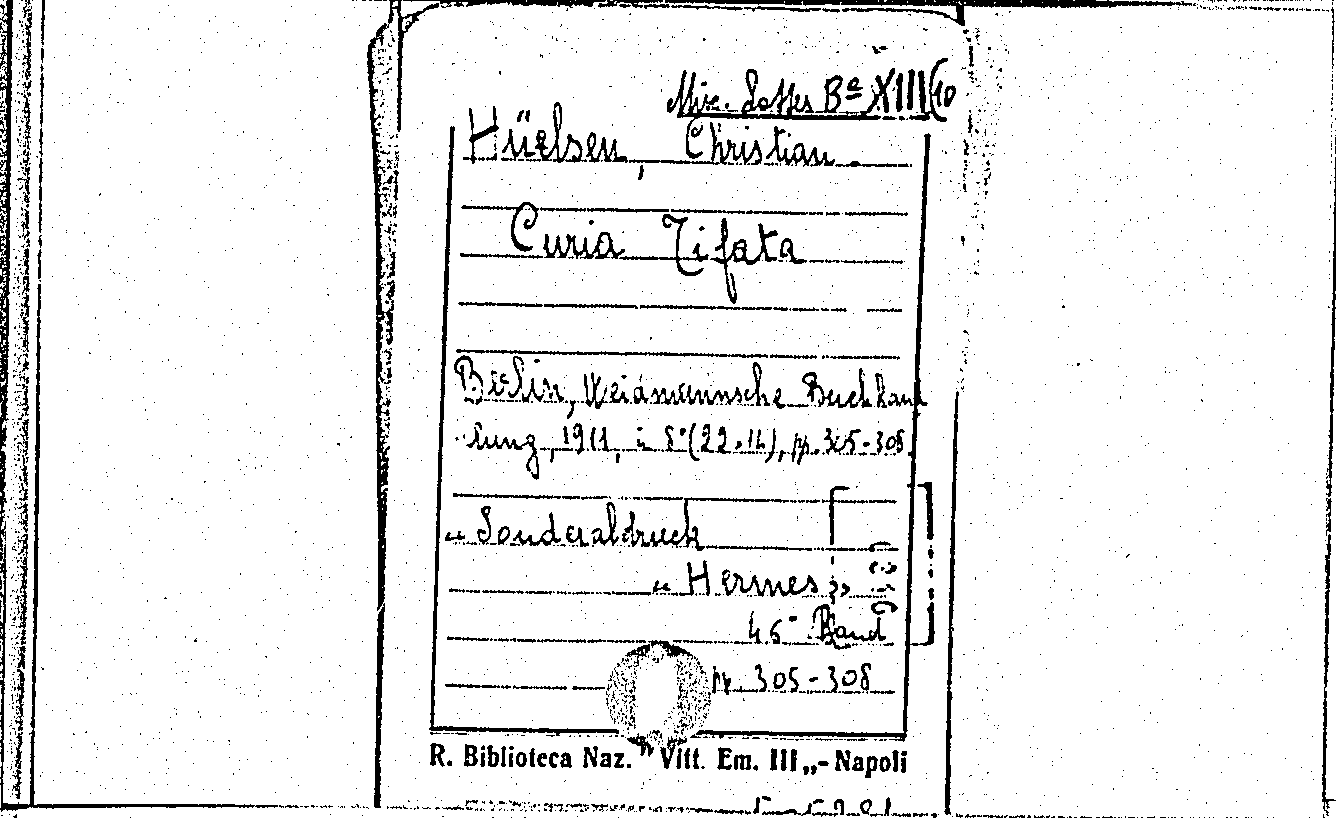 Misc. Laffer Ba XIII(10
Hüelsen, Christian.
Curia Tifata
Berlin, Weidmannsche Buchhand
lung, 1911, in 8°(22.14), pp. 305-308.
" Sonderabdruck
" Hermes »
46° Band
pp. 305-308
R. Biblioteca Naz. " Vitt. Em. III „- Napoli